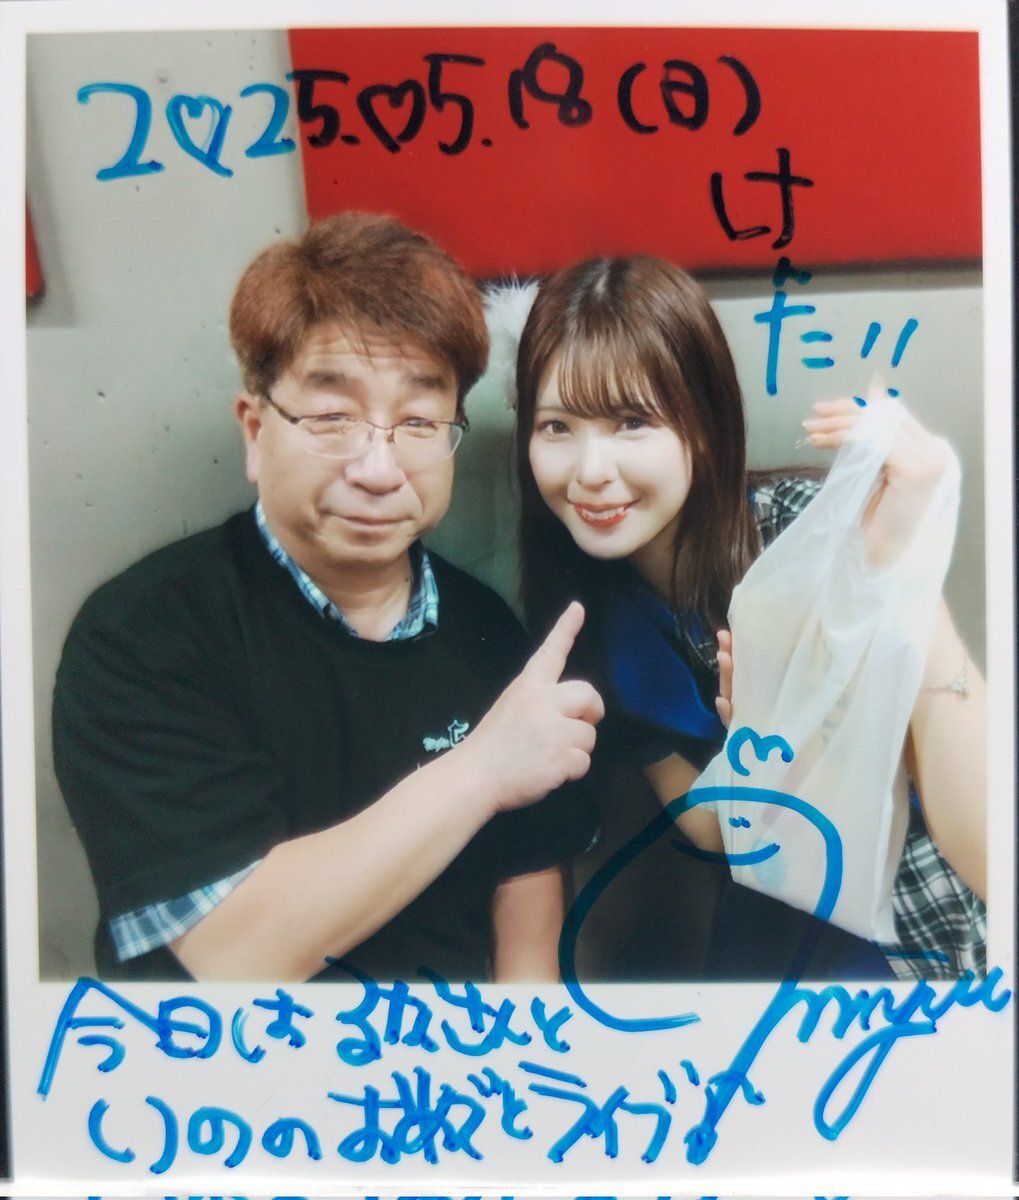 2♡25.♡5.18(日)
けだ!!
今日はるなさんと
いののおめでとライブ♪
myu